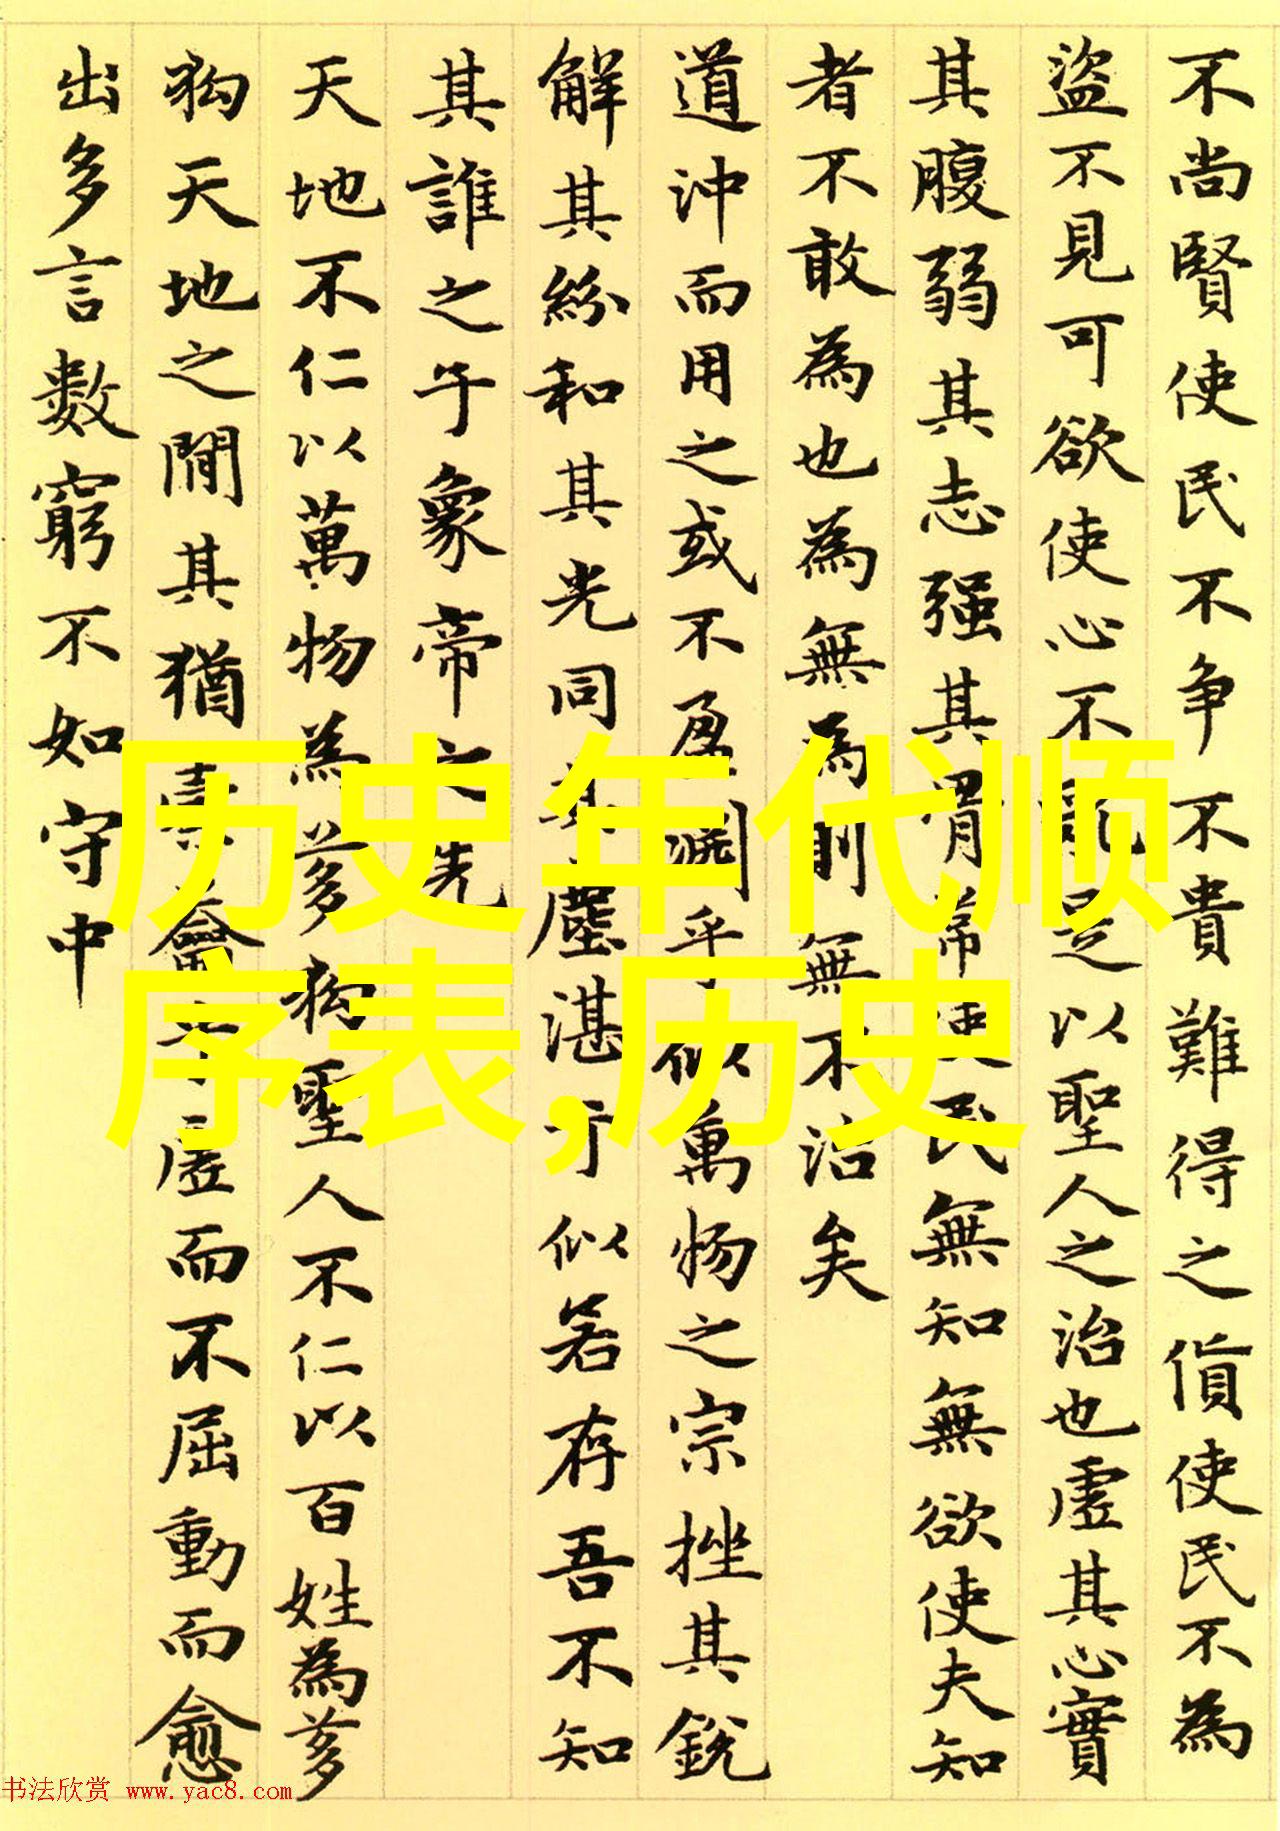 不尚賢使民不争不貴難得之貨使民不為
盜不見可欲使心不亂是以聖人之治也虛其心實
其腹弱其志强其骨常使民無知無欲使夫知
者不敢為也為無為則無不治矣
道沖而用之或不盈淵乎似萬物之宗挫其銳
解其紛和其光同其塵湛兮似若存吾不知
其誰之子象帝之先
天地不仁以萬物為芻狗聖人不仁以百姓為芻
狗天地之間其猶橐龠乎虛而不屈動而愈
出多言數窮不如守中
历史年代顺
序表,历史
书法欣赏 www.yac8.com